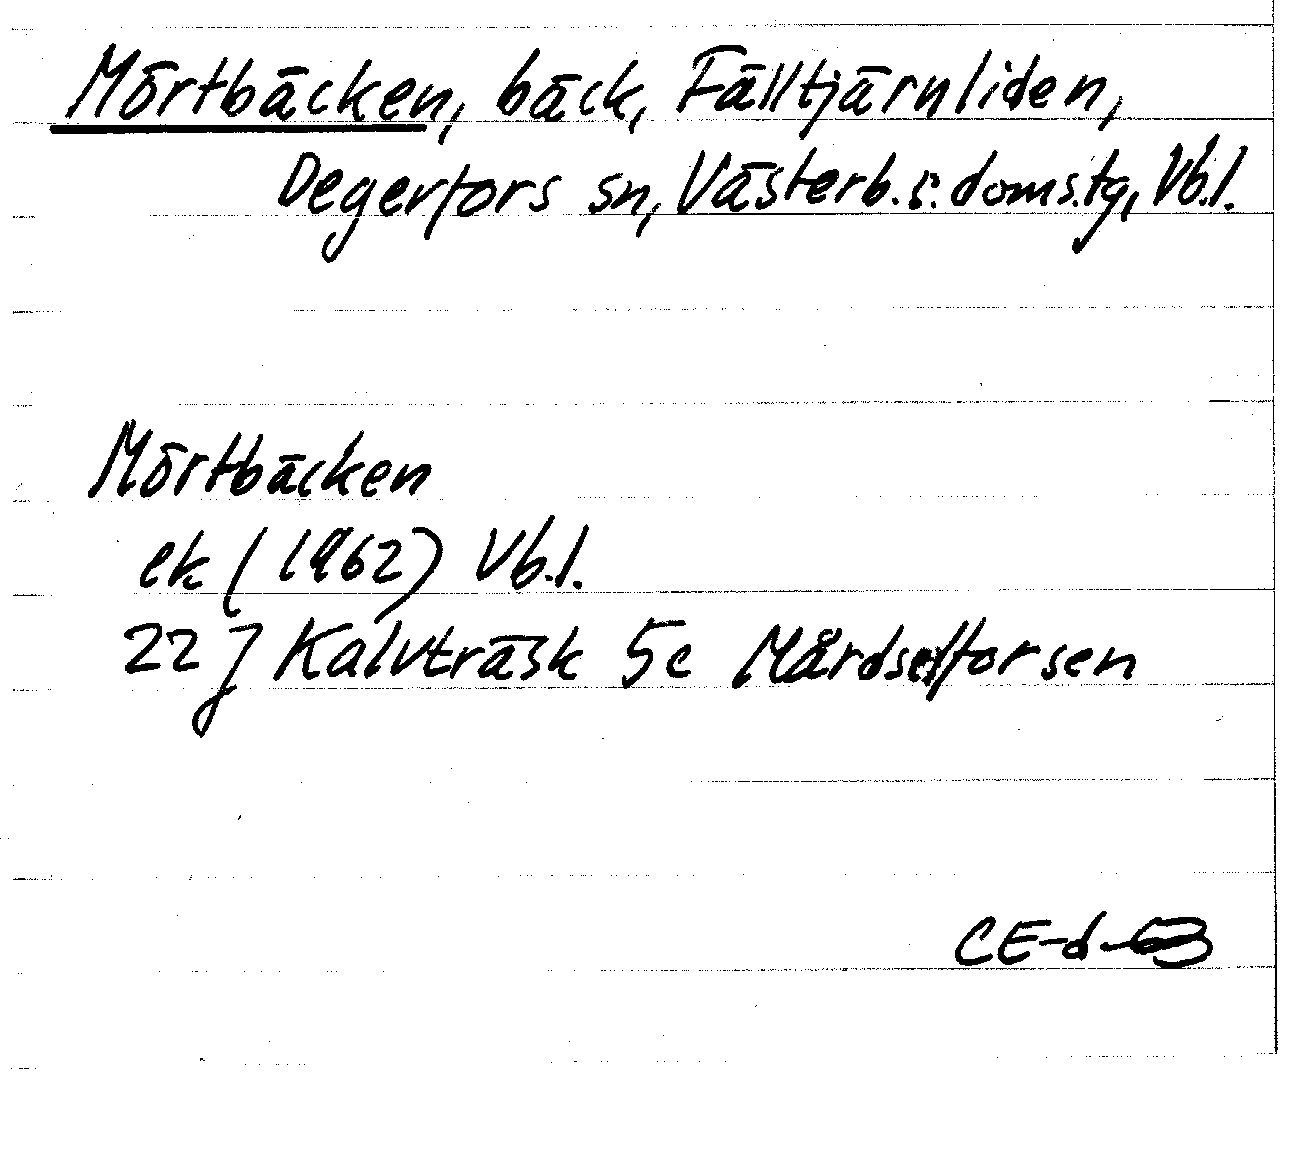 Mörtbäcken, bäck, Fälltjärnliden,
Degerfors sn, Västerb.s. domstg, Vb.l.
Mörtbäcken
ek (1962) Vb.l.
22 J Kalvträsk 5c Mårdselforsen
CE-d-63